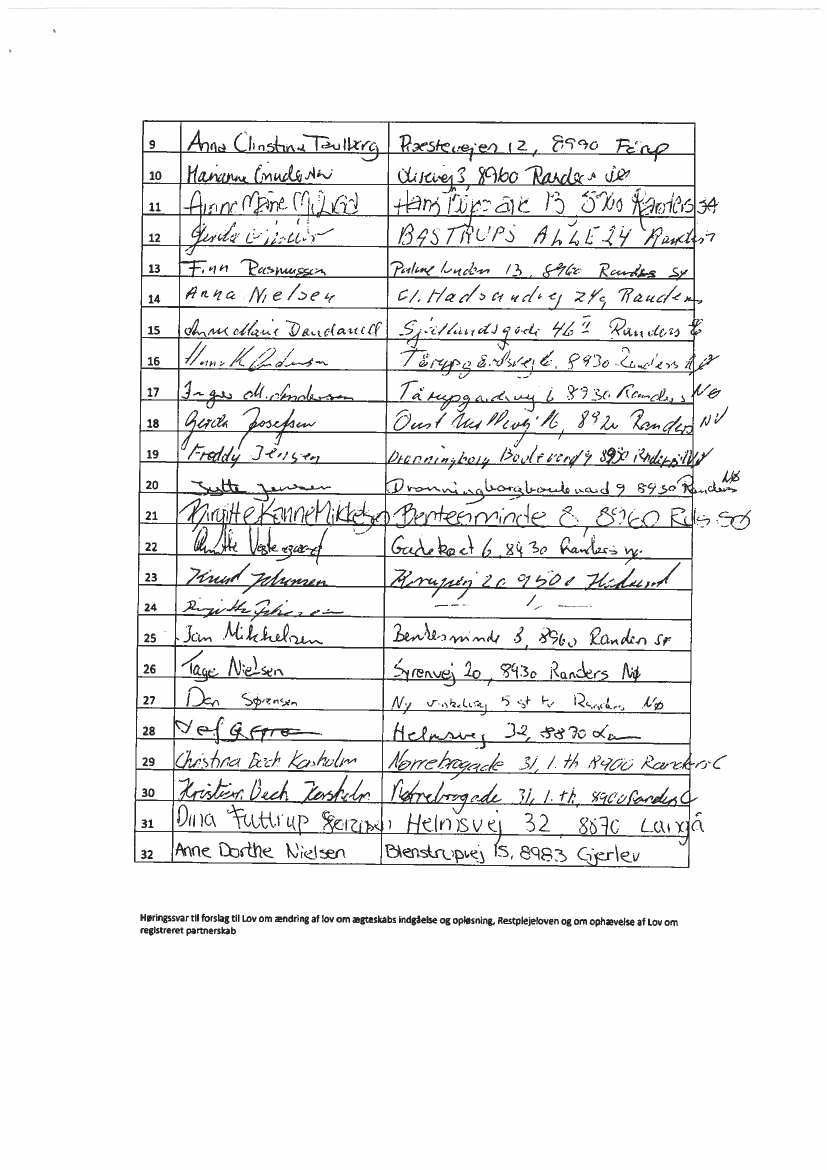 9 Anna Christina Taulberg Præstevejen 12, 8990 Fårup
10 Marianne 3, 8960 Randers
11 Anne Marie Hans 13, 8960 Randers SØ
12 Gerda BASTRUPS ALLE 24 Randers
13 Finn Rasmussen 13, 8960 Randers SØ
14 Anna Nielsen Gl. Hadsundvej 249 Randers
15 Anne Marie Dandanell Sjællandsgade 46 II Randers
16 K Andersen 8930 Randers NØ
17 Inger M. Andersen Tårupgårdvej 6 8930 Randers NØ
18 Gerda Josefsen Randers NV
19 Freddy Jensen Dronningborg Boulevard 9 8930 Randers NØ
20 Jytte Jensen Dronningborgboulevard 9 8930 Randers NØ
21 Birgitte Kanne Mikkelsen Bentesminde 8, 8960 Rds SØ
22 Vestergaard 6, 8930 Randers
23 Knud Johansen 20 9500 Hobro
24 Birgitte — " —
25 Jan Mikkelsen Bentesminde 8, 8960 Randers SØ
26 Tage Nielsen Syrenvej 20, 8930 Randers NØ
27 Dan Sørensen Ny 5 st tv Randers NØ
28 Helmsvej 32, 8870
29 Christina Bech Kasholm Nørrebrogade 31, 1. th 8900 Randers C
30 Kristian Bech Kasholm Nørrebrogade 31, 1. th, 8900 Randers C
31 Dina Futtrup Helmsvej 32, 8870 Langå
32 Anne Dorthe Nielsen Blenstrupvej 15, 8983 Gjerlev
Høringssvar til forslag til Lov om ændring af lov om ægteskabs indgåelse og opløsning, Restplejeloven og om ophævelse af Lov om
registreret partnerskab